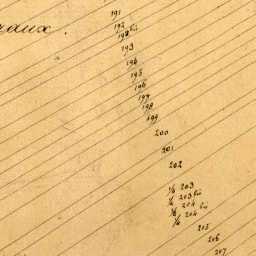 191
raux.
192
192 bis
193
194
195
196
197
198
199
200
201
202
1/6 203
1/6 203 bis
1/6 204 bis
1/6 204
205
206
207